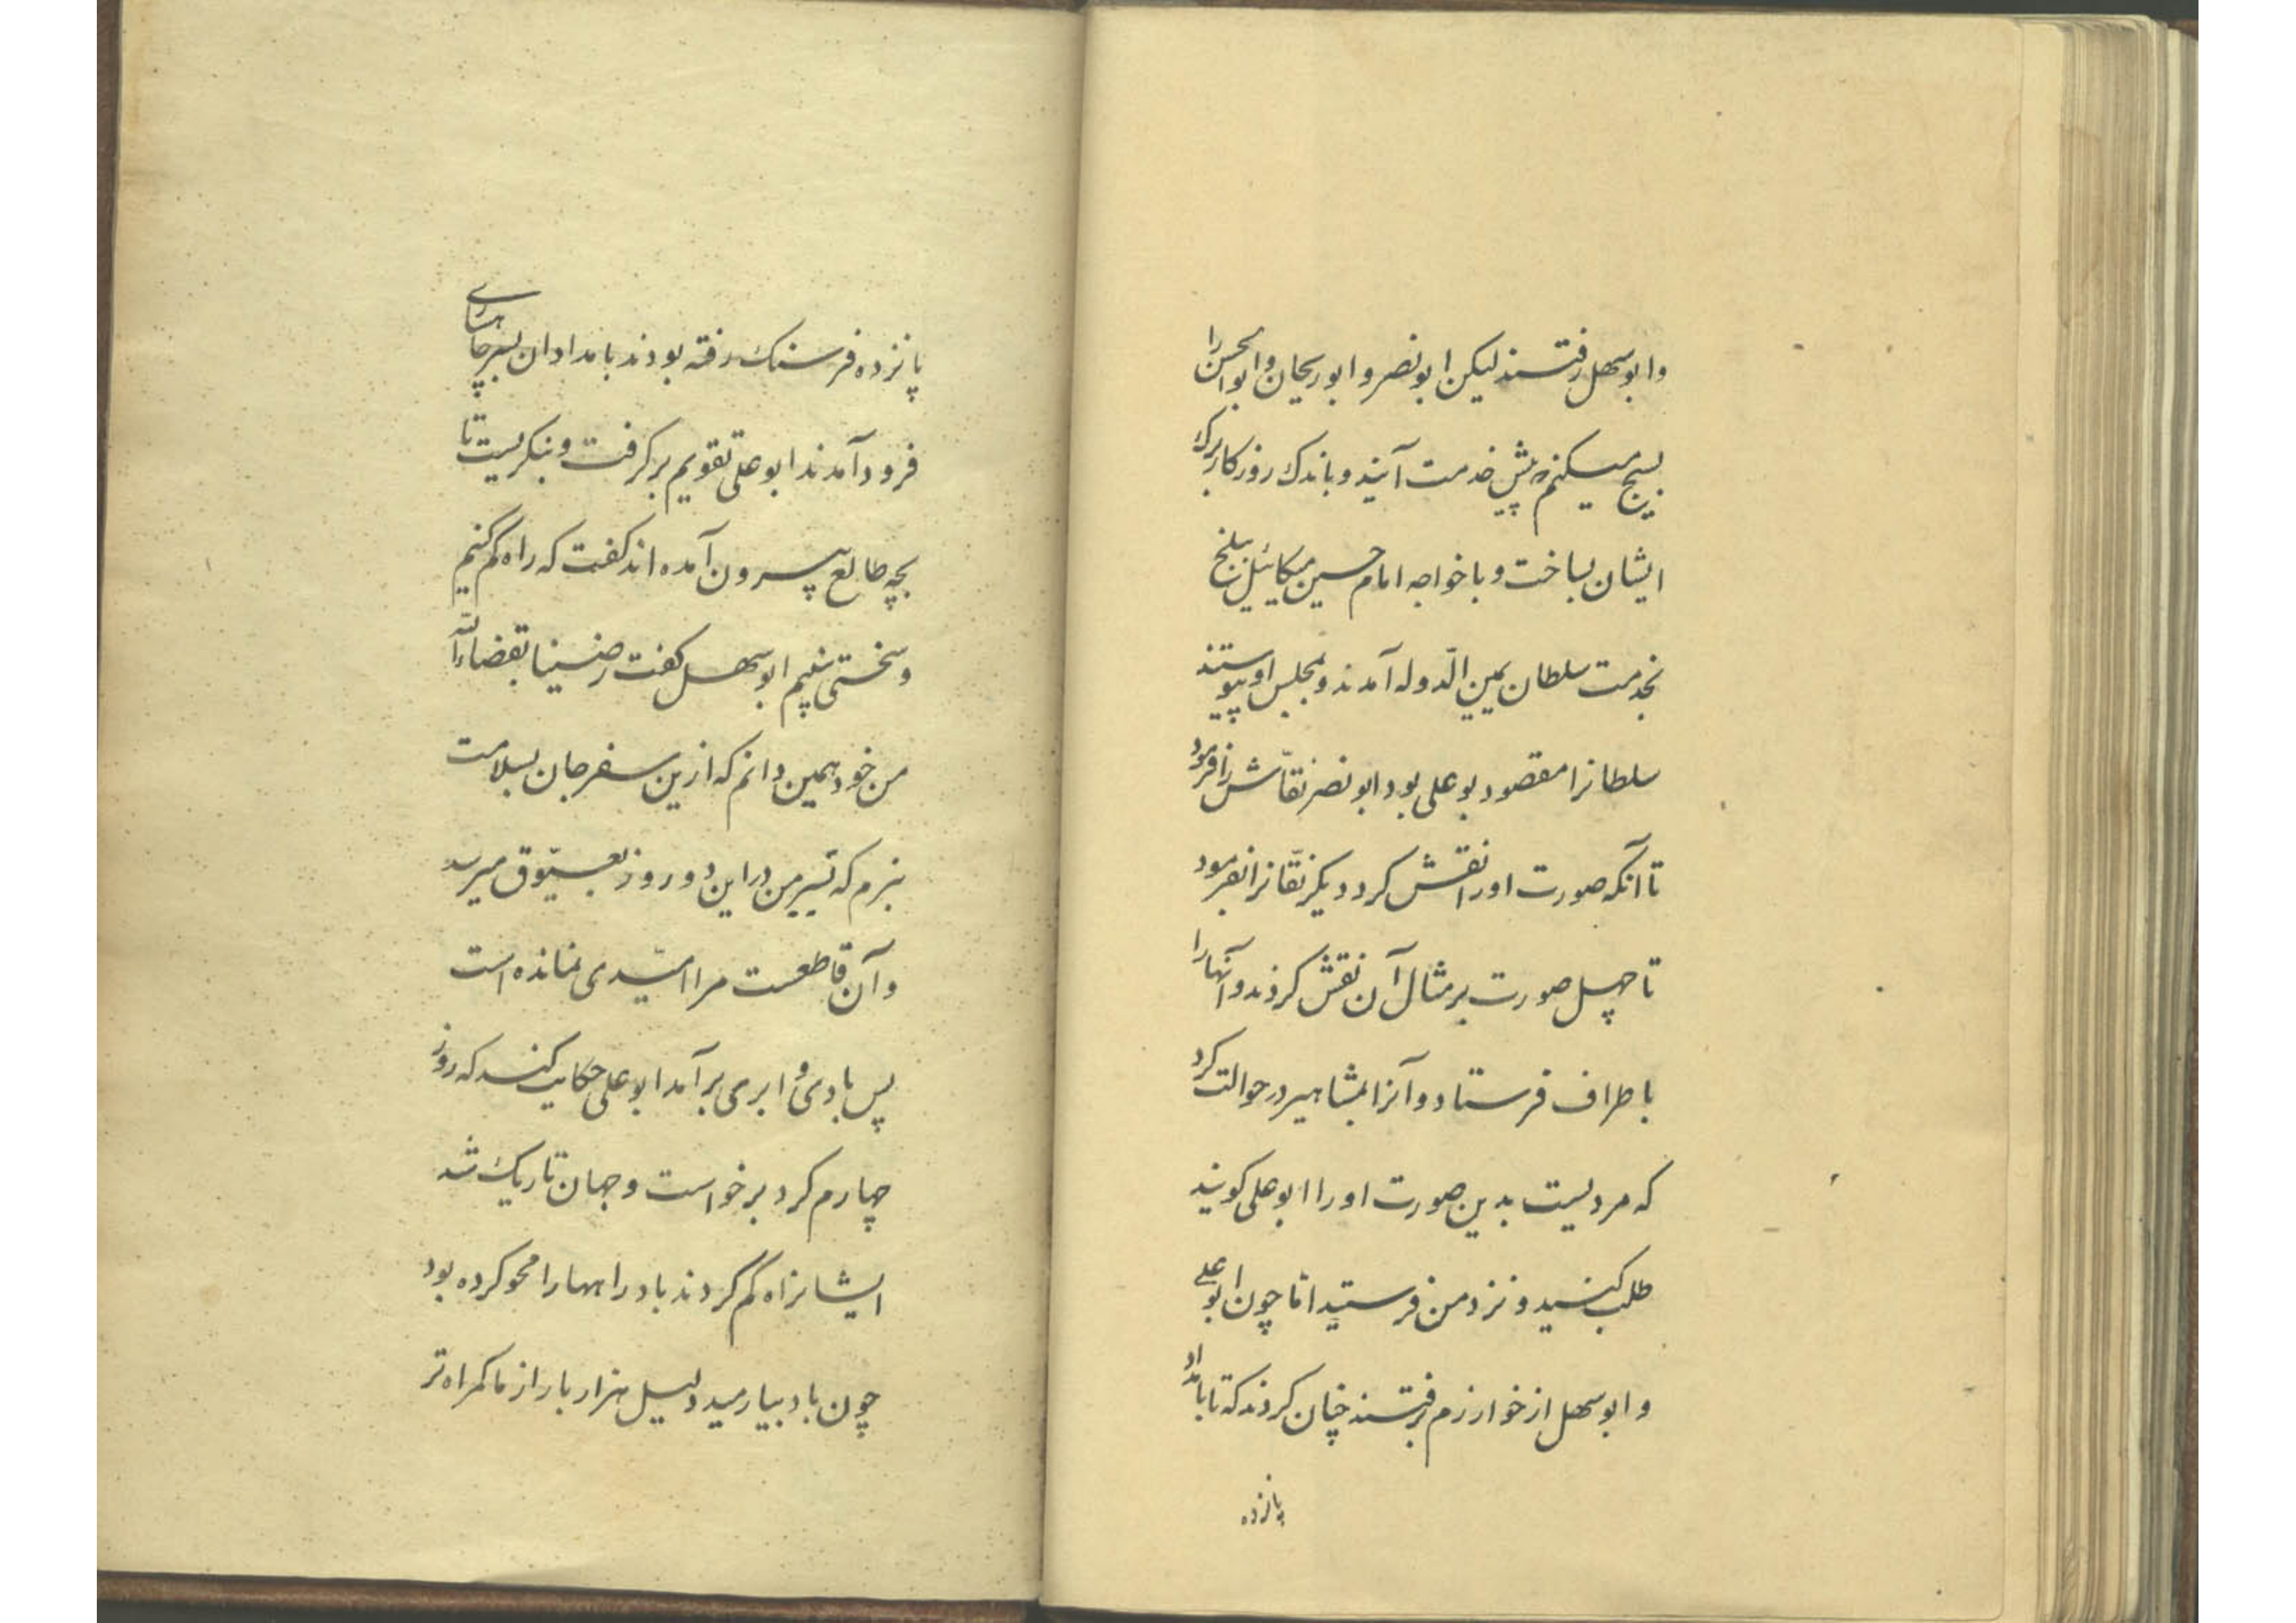 وابوسهل رفتند لیکن ابونصر و ابوریحان و ابوالحسن را
بسیج میکنم که پیش خدمت آیند و باندک روزکار برک
ایشان بساخت و با خواجه امام حسین میکائیل ببلخ
بخدمت سلطان یمین الدّوله آمدند و بمجلس او پیوستند
سلطانرا مقصود بوعلی بود ابونصر نقّاش را فرمود
تا آنکه صورت اورا نقش کرد دیکر نقّانرا بفرمود
تا چهل صورت بر مثال آن نقش کردند و آنها را
باطراف فرستاد و آنرا بمشاهیر در حوالت کرد
که مردیست بدین صورت اورا ابوعلی کویند
طلب کنید و نزد من فرستید امّا چون ابوعلی
و ابوسهل از خوارزم برفتند چنان کردند که تا بامداد
پانزده
پانزده فرسنک رفته بودند بامدادان بسر چاهساری
فرود آمدند ابوعلی تقویم برکرفت و بنکریست تا
بچه طالع بیرون آمده اند کفت که راه کم کنیم
و سختی بینیم ابوسهل کفت رضینا بقضاء الله
من خود همین دانم که ازین سفر جان بسلامت
نبرم که تسییر من در این دو روز بعیّوق میرسد
و آن قاطعست مرا امیّدی نمانده است
پس بادی و ابری برآمد ابوعلی حکایت کند که روز
چهارم کرد برخواست و جهان تاریک شد
ایشان راه کم کردند باد راهها را محو کرده بود
چون باد بیارمید دلیل هزار بار از ما کمراه تر